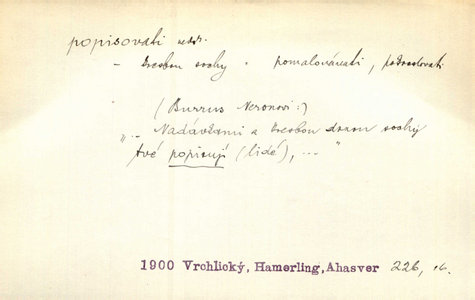 popisovati nedok.
- kresbou sochy · pomalovávati, pokreslovati
(Burrus Neronovi:)
„... Nadávkami a kresbou drzou sochy
tvé popisují (lidé), ... "
1900 Vrchlický, Hamerling, Ahasver 226, 16.